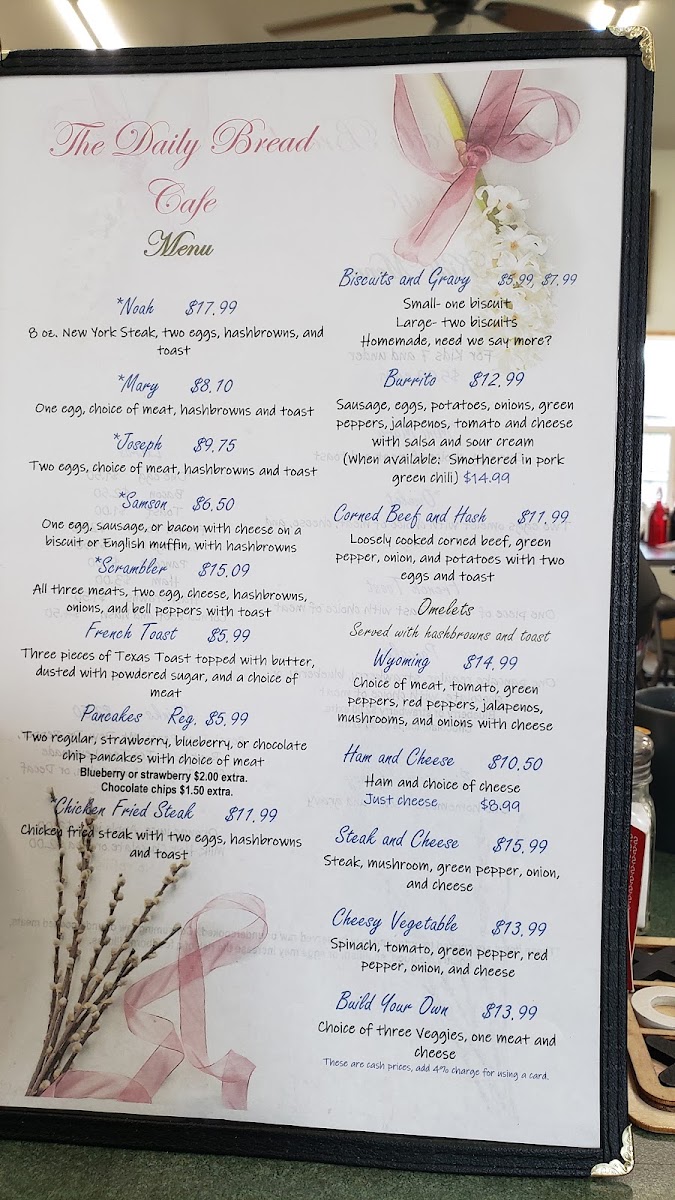 The Daily Bread
Cafe
Menu
*Noah $17.99
8 oz. New York Steak, two eggs, hashbrowns, and
toast
*Mary $8.10
One egg, choice of meat, hashbrowns and toast
*Joseph $9.75
Two eggs, choice of meat, hashbrowns and toast
*Samson $6.50
One egg, sausage, or bacon with cheese on a
biscuit or English muffin, with hashbrowns
*Scrambler $15.09
All three meats, two egg, cheese, hashbrowns,
onions, and bell peppers with toast
French Toast $5.99
Three pieces of Texas Toast topped with butter,
dusted with powdered sugar, and a choice of
meat
Pancakes Reg. $5.99
Two regular, strawberry, blueberry, or chocolate
chip pancakes with choice of meat
Blueberry or strawberry $2.00 extra.
Chocolate chips $1.50 extra.
*Chicken Fried Steak $11.99
Chicken fried steak with two eggs, hashbrowns
and toast
Biscuits and Gravy $5.99, $7.99
Small- one biscuit
Large- two biscuits
Homemade, need we say more?
Burrito $12.99
Sausage, eggs, potatoes, onions, green
peppers, jalapenos, tomato and cheese
with salsa and sour cream
(When available: Smothered in pork
green chili) $14.99
Corned Beef and Hash $11.99
Loosely cooked corned beef, green
pepper, onion, and potatoes with two
eggs and toast
Omelets
Served with hashbrowns and toast
Wyoming $14.99
Choice of meat, tomato, green
peppers, red peppers, jalapenos,
mushrooms, and onions with cheese
Ham and Cheese $10.50
Ham and choice of cheese
Just cheese $8.99
Steak and Cheese $15.99
Steak, mushroom, green pepper, onion,
and cheese
Cheesy Vegetable $13.99
Spinach, tomato, green pepper, red
pepper, onion, and cheese
Build Your Own $13.99
Choice of three Veggies, one meat and
cheese
These are cash prices, add 4% charge for using a card.